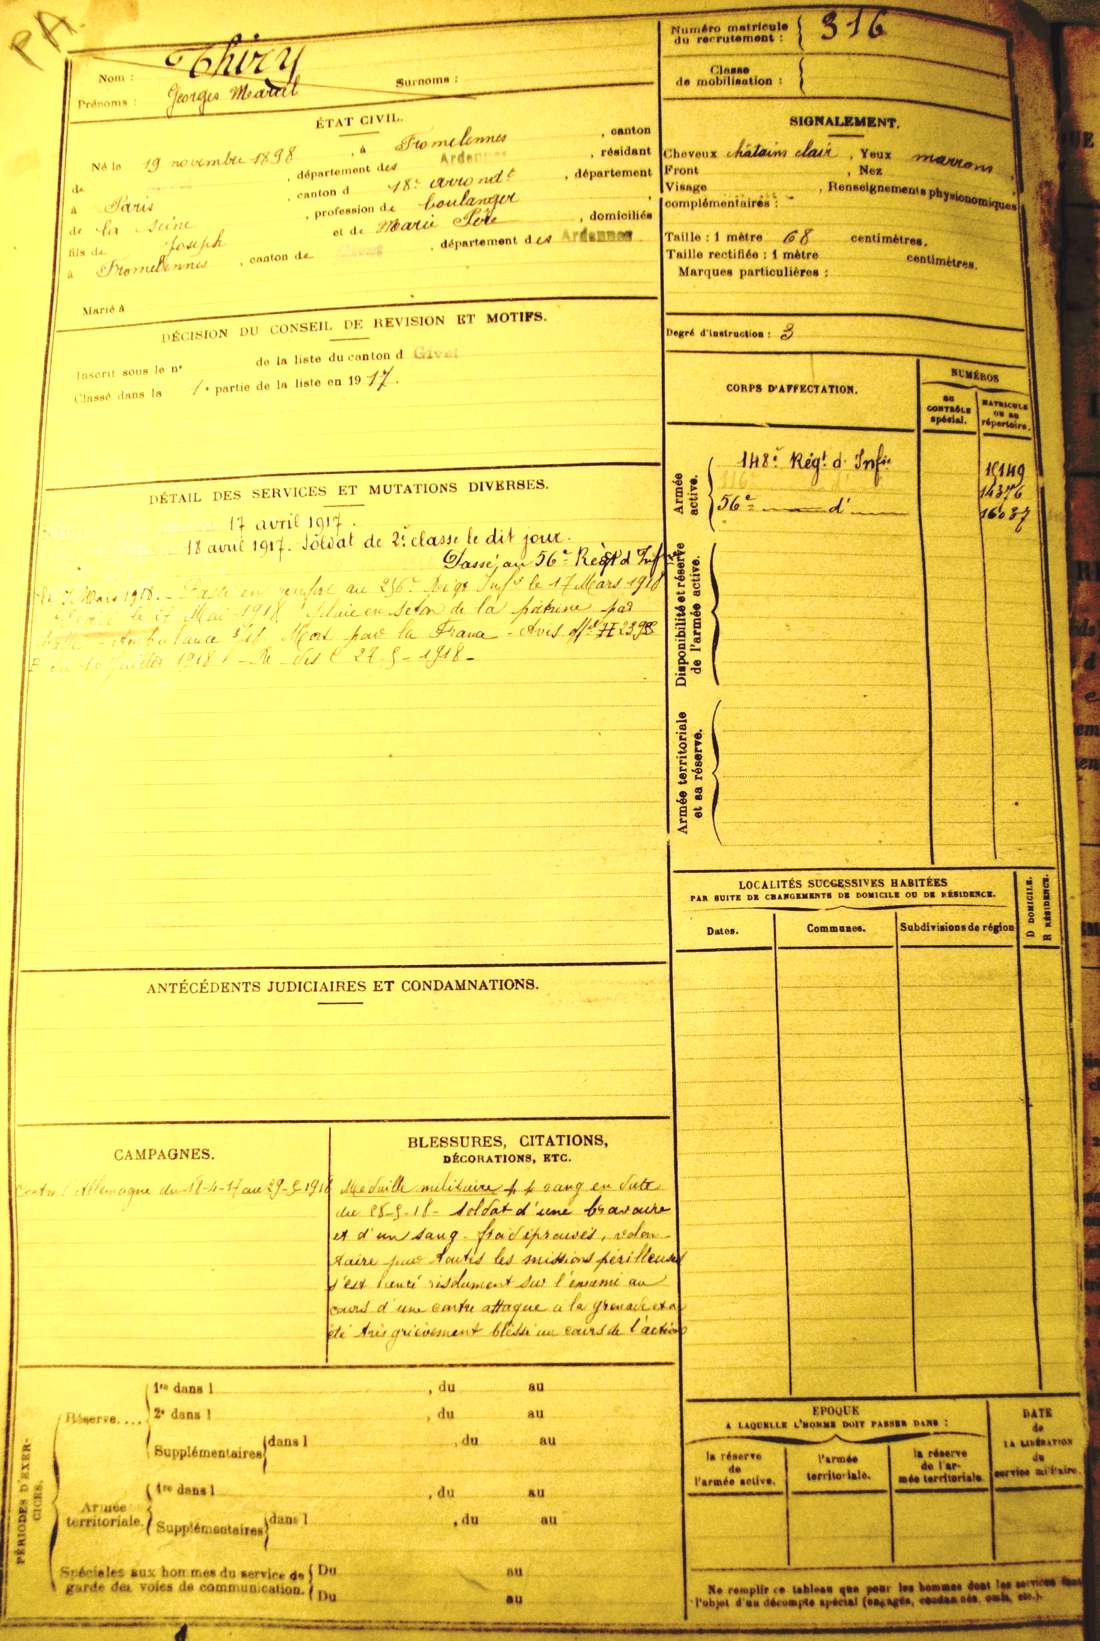 PA
Nom : Thiry Surnoms :
Prénoms : Georges Marcel
Numéro matricule du recrutement : 316
Classe de mobilisation :
ÉTAT CIVIL.
Né le 19 novembre 1898, à Fromelennes, canton
de , département des Ardennes, résidant
à Paris, canton d 18e arrondt, département
de la Seine, profession de boulanger,
fils de Joseph et de Marie, domiciliés
à Fromelennes, canton de Givet, département des Ardennes
Marié à
SIGNALEMENT.
Cheveux châtain clair, Yeux marrons,
Front , Nez ,
Visage , Renseignements physionomiques
complémentaires :
Taille : 1 mètre 68 centimètres.
Taille rectifiée : 1 mètre centimètres.
Marques particulières :
Degré d'instruction : 3
DÉCISION DU CONSEIL DE REVISION ET MOTIFS.
Inscrit sous le nº de la liste du canton d Givet
Classé dans la 1e partie de la liste en 1917.
DÉTAIL DES SERVICES ET MUTATIONS DIVERSES.
17 avril 1917.
18 avril 1917. Soldat de 2e classe le dit jour.
Passé au 56e Régt d Infie
Mars 1918. - Passé en renfort au 256e Régt Infie le 17 Mars 1918
le 27 Mai 1918 Plaie en seton de la poitrine par
balle - Ambulance Mort pour la France - Avis offel
du 10 Juillet 1918
CORPS D'AFFECTATION.
NUMÉROS
AU CONTRÔLE spécial.
MATRICULE OU AU répertoire.
Armée active.
148e Régt d' Infie
14376
56e d°
Disponibilité et réserve de l'armée active.
Armée territoriale et sa réserve.
LOCALITÉS SUCCESSIVES HABITÉES
PAR SUITE DE CHANGEMENTS DE DOMICILE OU DE RÉSIDENCE.
Dates. Communes. Subdivisions de région
D DOMICILE.
R RÉSIDENCE.
ANTÉCÉDENTS JUDICIAIRES ET CONDAMNATIONS.
CAMPAGNES.
Contre l'Allemagne du 18-4-17 au 29-5-1918
BLESSURES, CITATIONS,
DÉCORATIONS, ETC.
Médaille militaire p. p. rang en date
du 28-5-18 - Soldat d'une bravoure
et d'un sang-froid éprouvés, volon-
taire pour toutes les missions périlleuses
s'est lancé résolument sur l'ennemi au
cours d'une contre attaque à la grenade et a
été très grièvement blessé au cours de l'action
PÉRIODES D'EXERCICES.
Réserve....
1re dans l , du au
2e dans l , du au
Supplémentaires dans l , du au
Armée territoriale.
1re dans l , du au
Supplémentaires dans l , du au
Spéciales aux hommes du service de garde des voies de communication.
Du au
Du au
EPOQUE
A LAQUELLE L'HOMME DOIT PASSER DANS :
la réserve de l'armée active.
l'armée territoriale.
la réserve de l'armée territoriale.
DATE de LA LIBÉRATION du service militaire.
Ne remplir ce tableau que pour les hommes dont les services font
l'objet d'un décompte spécial (engagés, condamnés, omis, etc.).